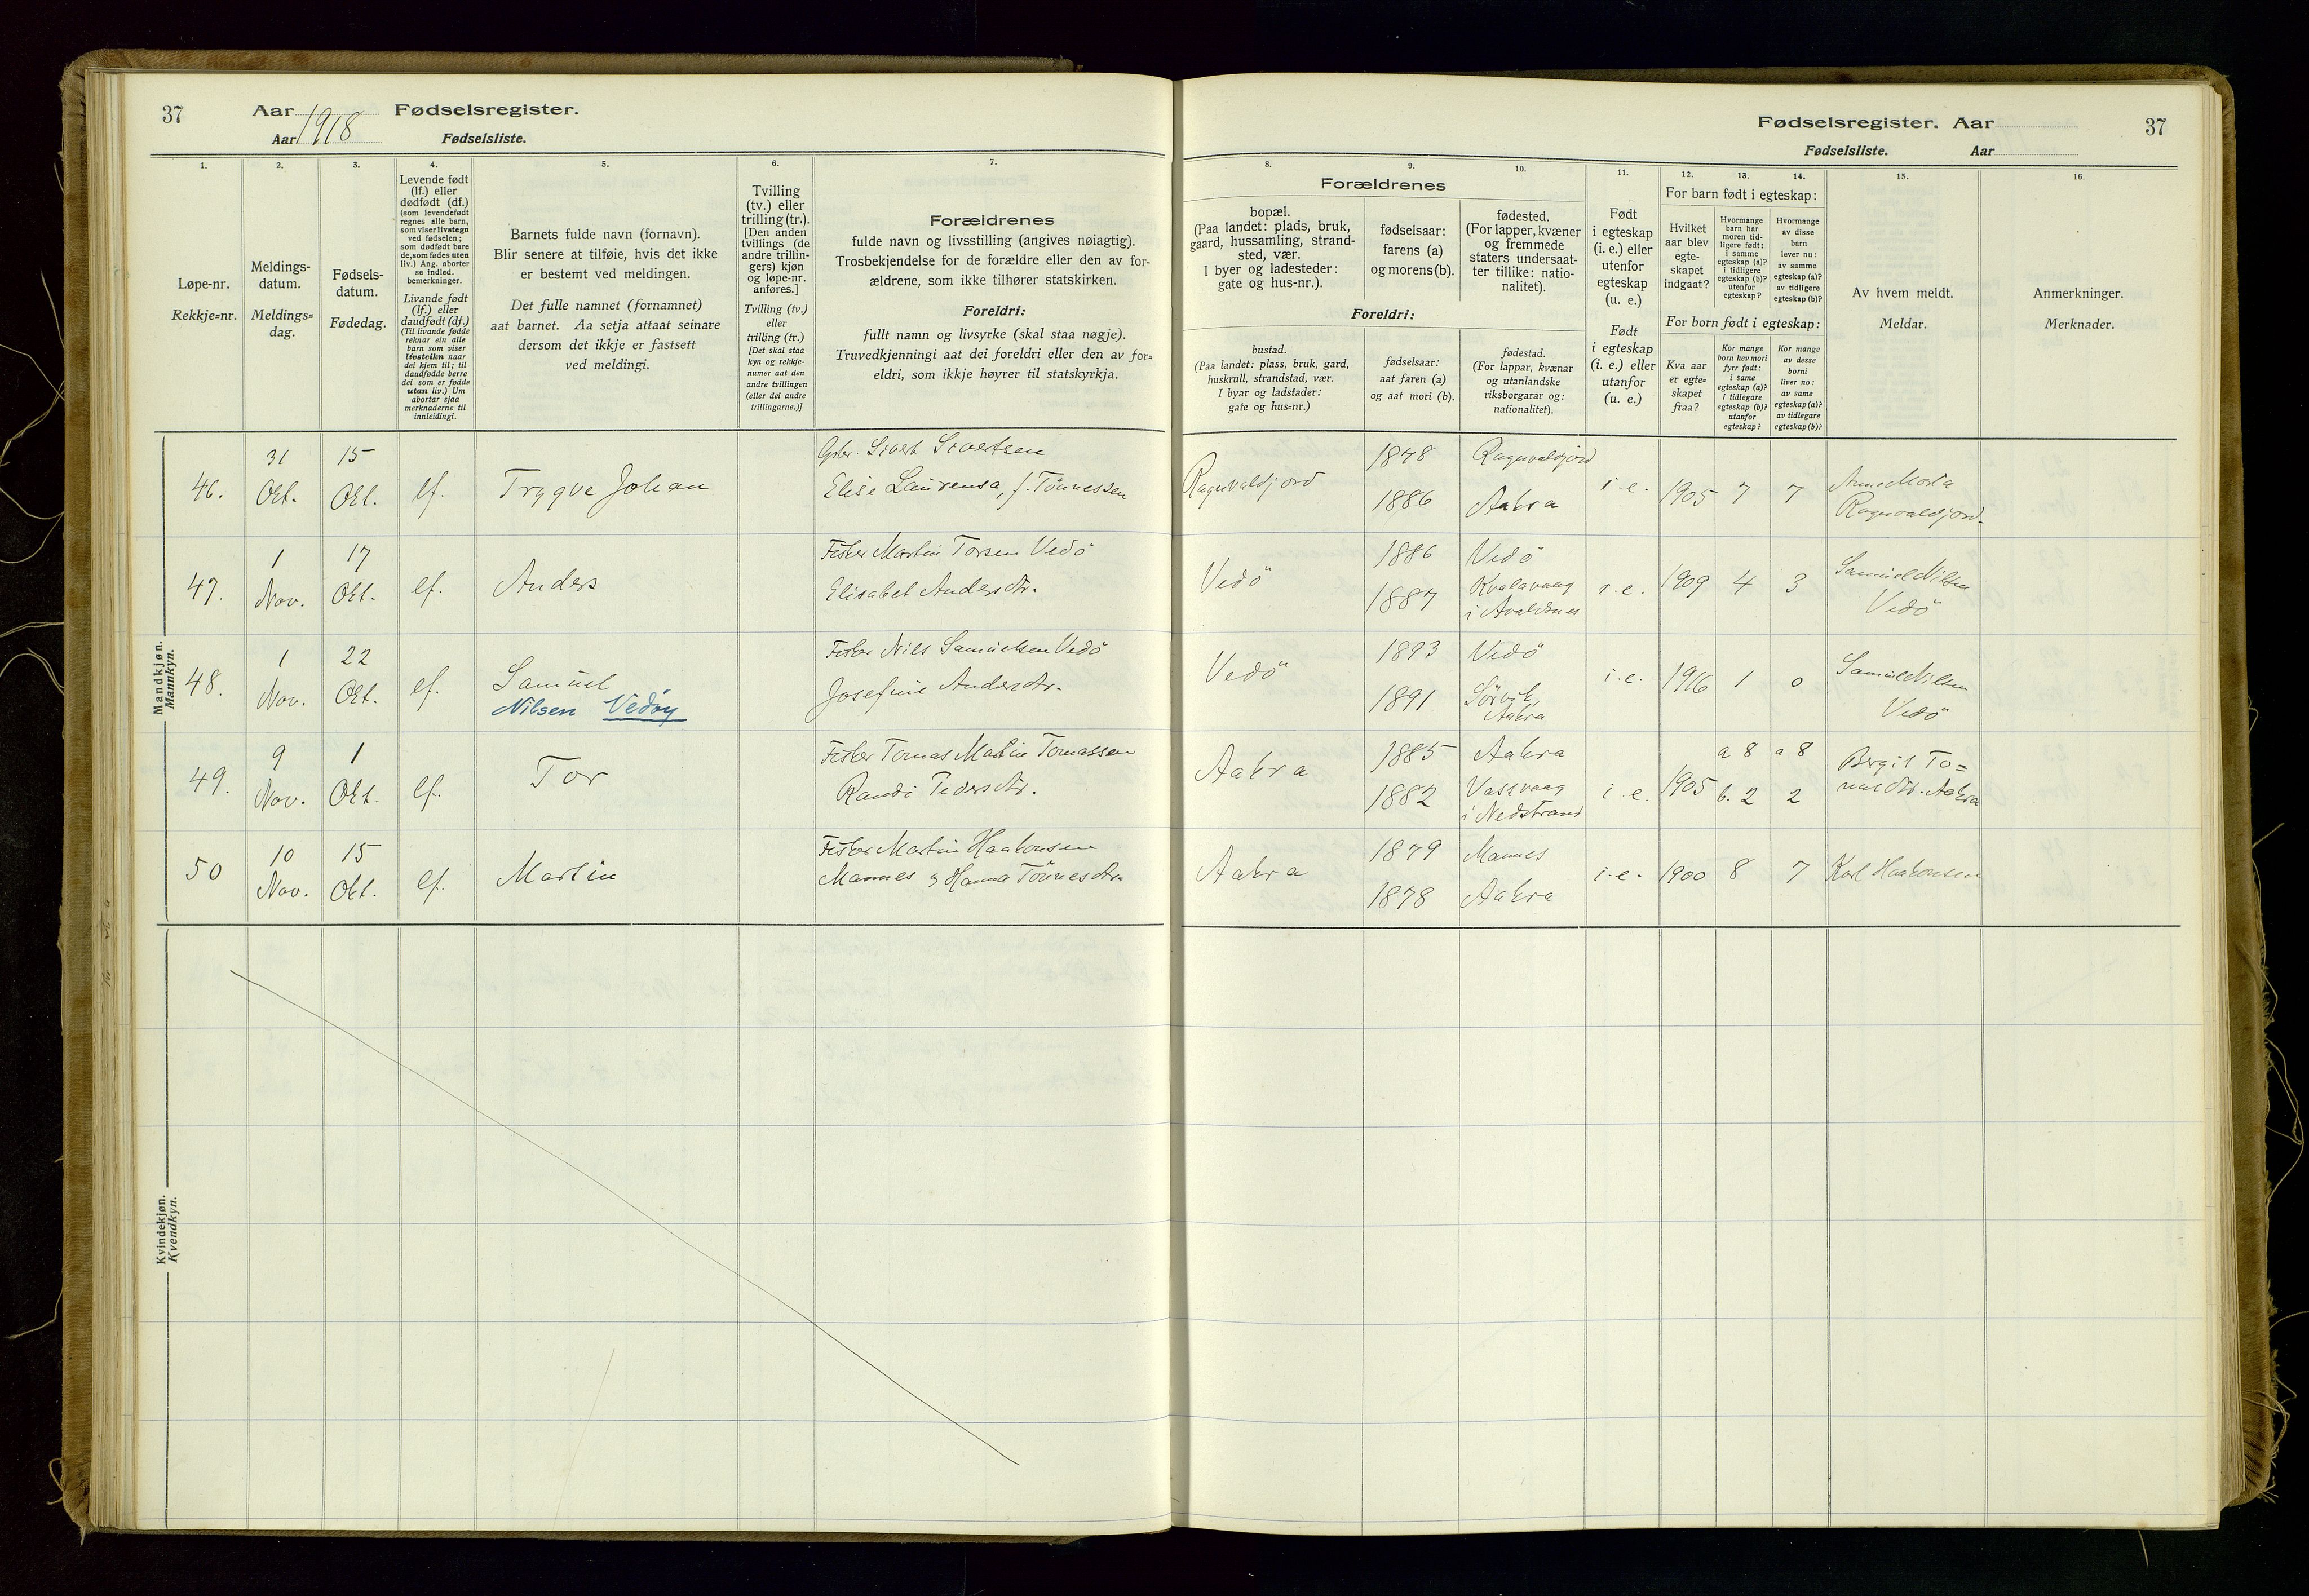 37
Aar 1918 Fødselsregister.
Aar Fødselsliste.
1.
Løpe-nr.
Rekkje=nr.
2.
Meldings-
datum.
Meldings=
dag.
3.
Fødsels-
datum.
Fødedag.
4.
Levende født
(lf.) eller
dødfødt (df.)
(som levendefødt
regnes alle barn,
som viser livstegn
ved fødselen;
som dødfødt bare
de, som fødes uten
liv.) Ang. aborter
se indled.
bemerkninger.
Livande født
(lf.) eller
daudfødt (df.)
(Til livande fødde
reknar ein alle
barn som viser
livsteikn naar
dei kjem til; til
daudfødde berre
dei som er fødde
utan liv.) Um
abortar sjaa
merknaderne til
innleidingi.
5.
Barnets fulde navn (fornavn).
Blir senere at tilføie, hvis det ikke
er bestemt ved meldingen.
Det fulle namnet (fornamnet)
aat barnet. Aa setja attaat seinare
dersom det ikkje er fastsett
ved meldingi.
6.
Tvilling
(tv.) eller
trilling (tr.).
[Den anden
tvillings (de
andre trillin-
gers) kjøn
og løpe-nr.
anføres.]
Tvilling (tv.)
eller
trilling (tr.)
[Det skal staa
kyn og rekkje-
numer aat den
andre tvillingen
(eller dei andre
trillingarne.)]
7.
Forældrenes
fulde navn og livsstilling (angives nøiagtig).
Trosbekjendelse for de forældre eller den av for-
ældrene, som ikke tilhører statskirken.
Foreldri:
fullt namn og livsyrke (skal staa nøgje).
Truvedkjenningi aat dei foreldri eller den av for=
eldri, som ikkje høyrer til statskyrkja.
Mandkjøn.
Mannkyn.
46.
31
Okt.
15
Okt.
lf.
Trygve Johan
Gbr. Sivert Sivertsen
Elise Laurensa, f. Tönnessen
47.
1
Nov.
17
Okt.
lf.
Anders
Fisker Martin Torsen Vedö
Elisabet Andersdtr.
48.
1
Nov.
22
Okt.
lf.
Samuel
Nilsen Vedøy
Fisker Nils Samuelsen Vedö
Josefine Andersdtr.
49.
9
Nov.
1
Okt.
lf.
Tor
Fisker Tomas Martin Tomassen
Randi Pedersdtr.
50
10
Nov.
15
Okt.
lf.
Martin
Fisker Martin Haakonsen
Mannes og Hanna Tönnesdtr.
Kvindekjøn.
Kvendkyn.
Fødselsregister. Aar
37
Fødselsliste. Aar
8.
Forældrenes
bopæl.
(Paa landet: plads, bruk,
gaard, hussamling, strand-
sted, vær.
I byer og ladesteder:
gate og hus-nr.).
9.
fødselsaar:
farens (a)
og morens (b).
10.
fødested.
(For lapper, kvæner
og fremmede
staters undersaat-
ter tillike: natio-
nalitet).
Foreldri:
bustad.
(Paa landet: plass, bruk, gard,
huskrull, strandstad, vær.
I byar og ladstader:
gate og hus=nr.)
fødselsaar:
aat faren (a)
og aat mori (b).
fødestad.
(For lappar, kvænar
og utanlandske
riksborgarar og:
nationalitet).
11.
Født
i egteskap
(i. e.) eller
utenfor
egteskap
(u. e.)
Født
i egteskap
(i. e.) eller
utanfor
(u. e.)
12. 13. 14.
For barn født i egteskap:
Hvilket
aar blev
egte-
skapet
indgaat?
Hvormange
barn har
moren tid-
ligere født:
i samme
egteskap (a)?
i tidligere
egteskap (b)?
utenfor
egteskap?
Hvormange
av disse
barn
lever nu:
av samme
egteskap (a)?
av tidligere
egteskap (b)?
For born født i egteskap:
Kva aar
er egte=
skapet
fraa?
Kor mange
born hev mori
fyrr født:
i same
egteskap (a)?
i tidlegare
egteskap (b)?
utanfor
egteskap?
Kor mange
av desse
borni
liver no:
av same
egteskap (a)?
av tidlegare
egteskap (b)?
15.
Av hvem meldt.
Meldar.
16.
Anmerkninger.
Merknader.
Ragnvaldjord
1848
1886
Ragnvaldjord
Aakra
i. e.
1905
7
7
Anne Marta
Ragnvaldjord.
Vedö
1886
1887
Vedö
Kvalavaag
i Avaldsnes
i. e.
1909
4
3
Samuel Nilsen
Vedö
Vedö
1893
1891
Vedö
Sörvik
Aakra
i. e.
1916
1
0
Samuel Nilsen
Vedö
Aakra
1885
1882
Aakra
Vassvaag
i Nedstrand
i. e.
1905
a 8 a 8
b. 2 2
Bergit To=
masdtr. Aakra
Aakra
1879
1878
Mannes
Aakra
i. e.
1900
8
7
Karl Haakonsen